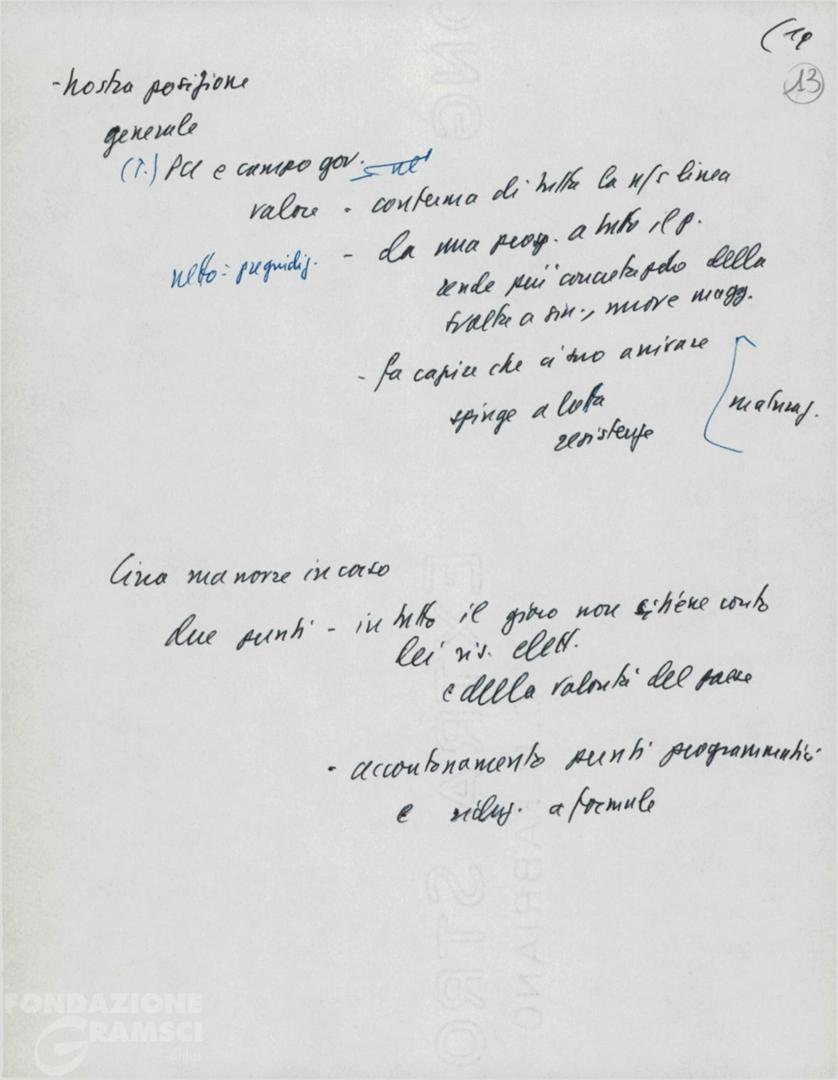 13
- nostra posizione
generale
(T.) PCI e campo gov.
valore - conferma di tutta la n/s linea
netto = pregiudiz. - dà una prosp. a tutto il p.
rende più concreta della
svolta a sin., nuove magg.
- fa capire che ci può arrivare
spinge a lotta
resistenze
maturaz.
Circa manovre in corso
due punti - in tutto il gioco non si tiene conto
dei ris. elett.
e della volontà del paese
- accantonamento punti programmatici
e riduz. a formule
EXTRA STRONG
FABRIANO
FONDAZIONE
GRAMSCI
onlus